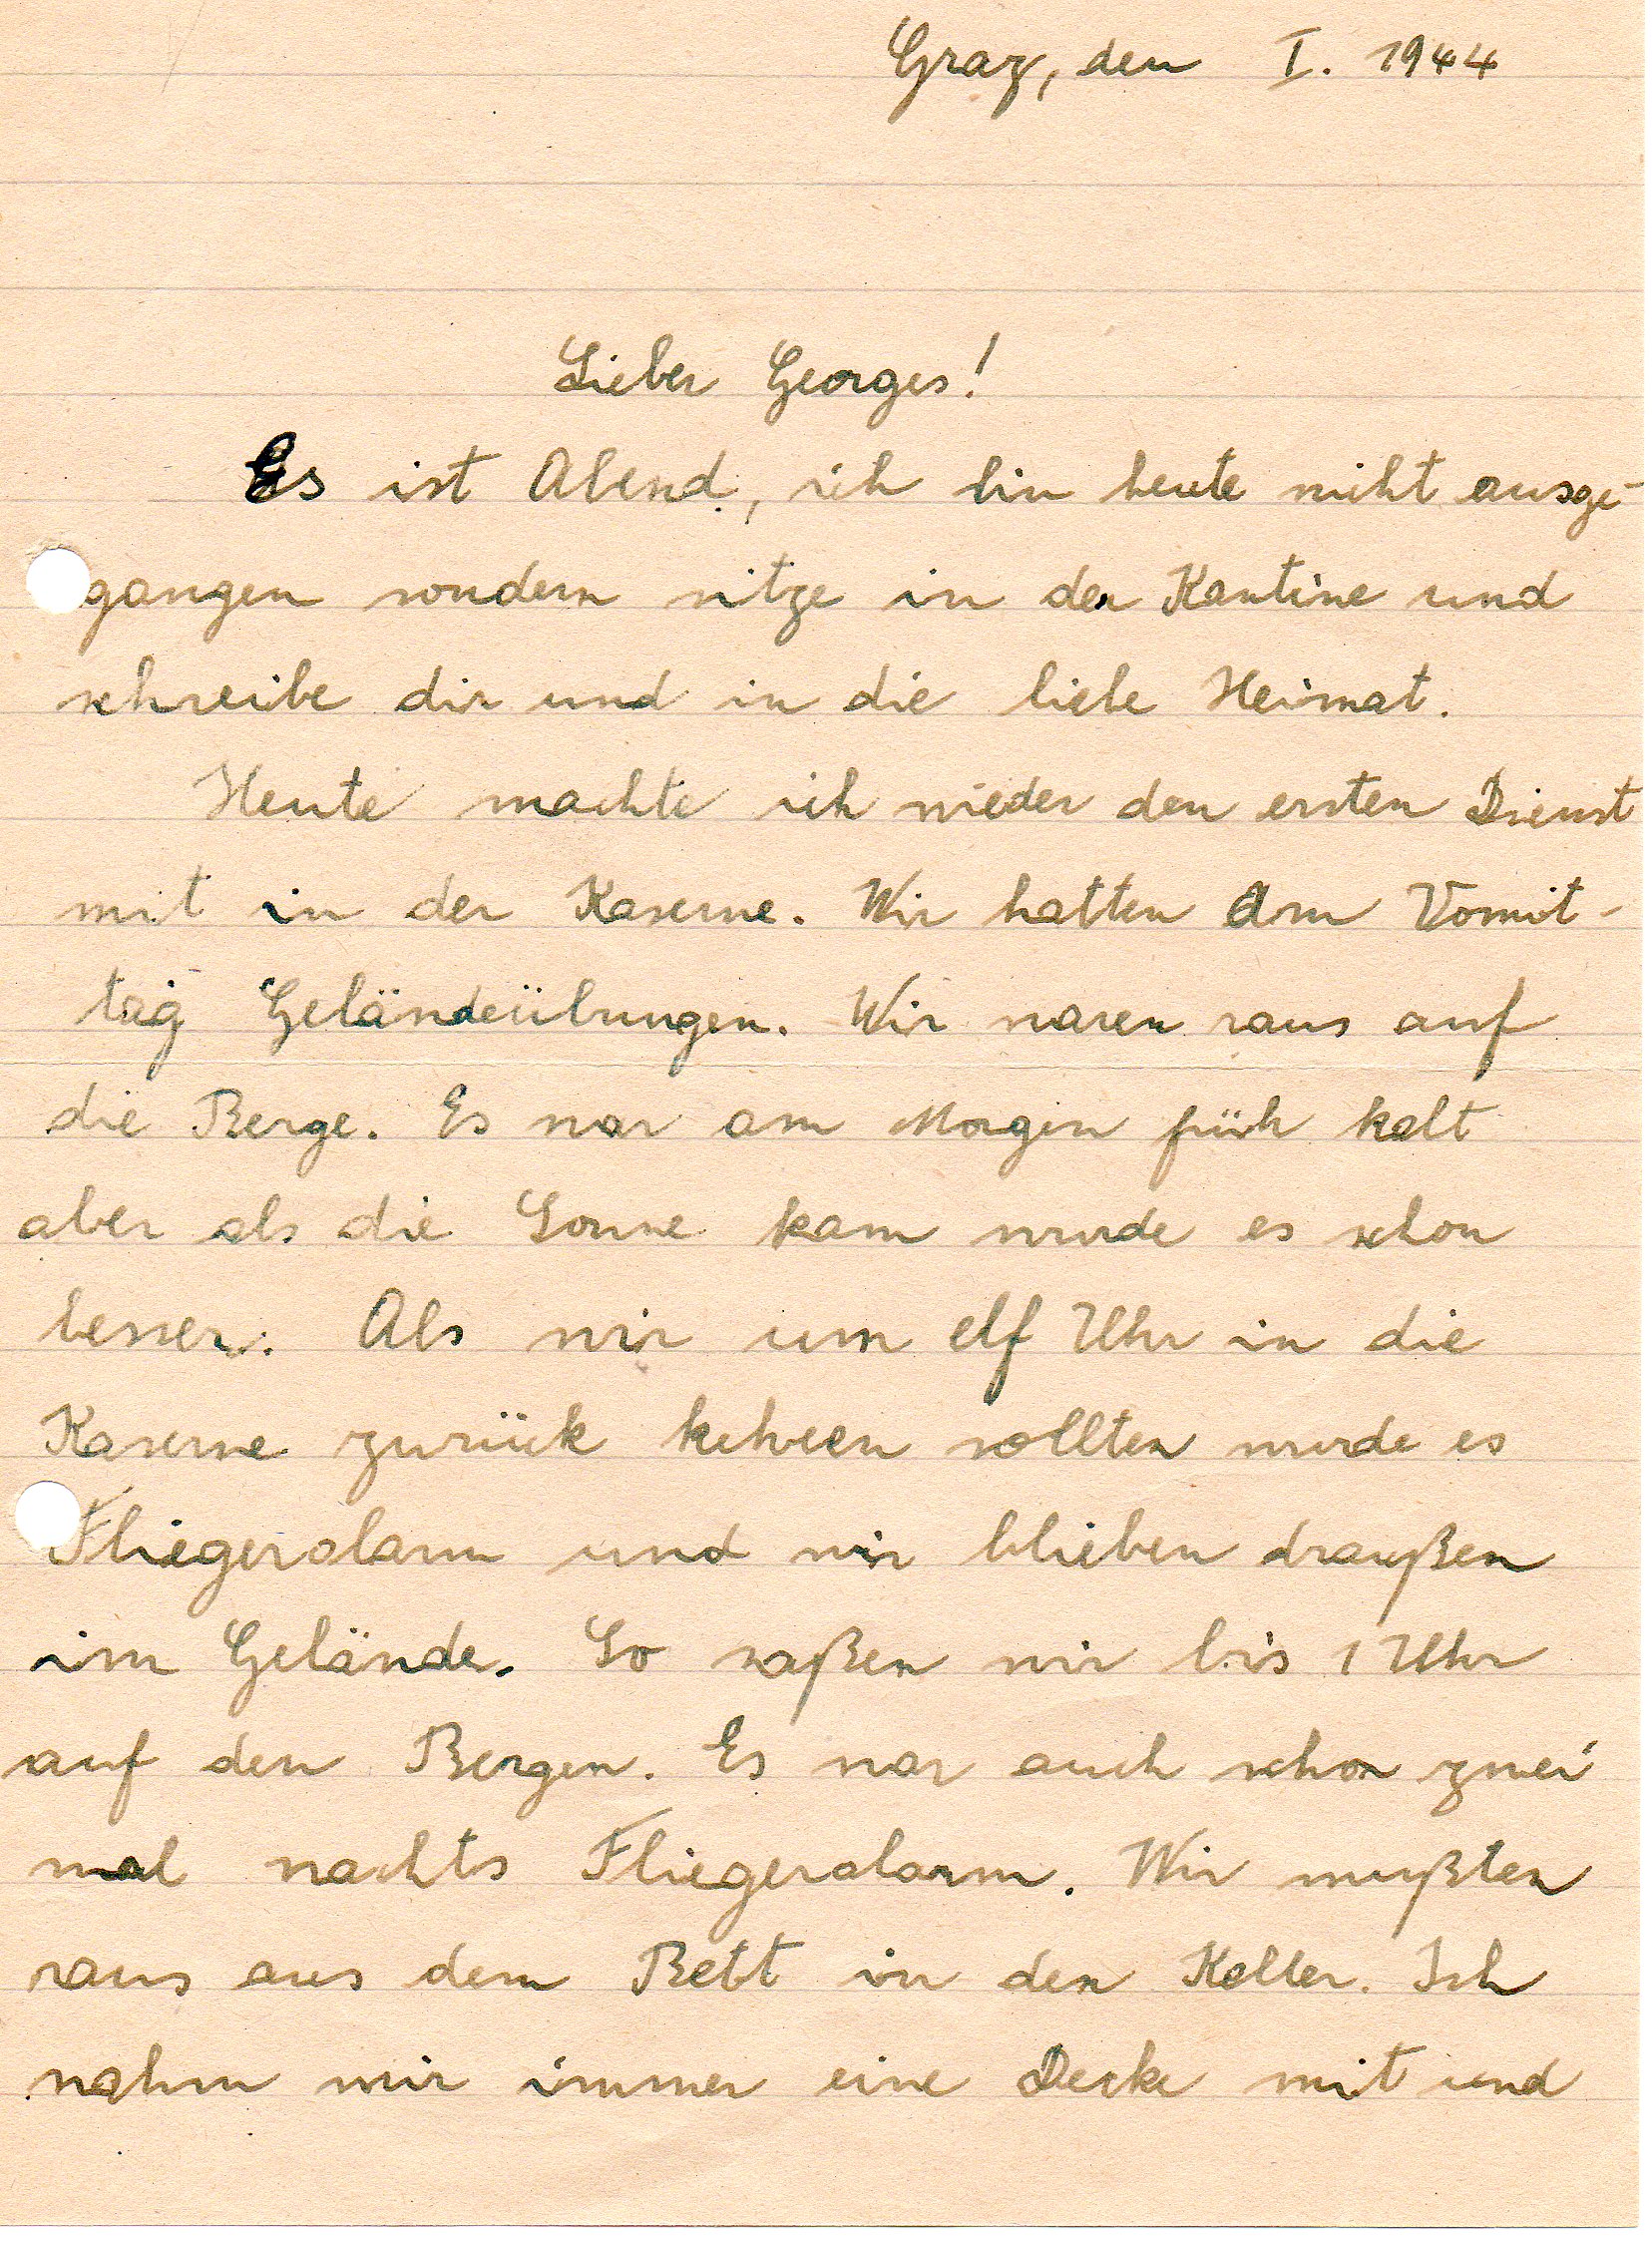 Graz, den I. 1944
Lieber Georges!
Es ist Abend, ich bin heute nicht ausge-
gangen sondern sitze in der Kantine und
schreibe dir und in die liebe Heimat.
Heute machte ich wieder den ersten Dienst
mit in der Kaserne. Wir hatten Am Vormit-
tag Geländeübungen. Wir waren raus auf
die Berge. Es war am Morgen früh kalt
aber als die Sonne kam wurde es schon
besser. Als wir um elf Uhr in die
Kaserne zurück kehren sollten wurde es
Fliegeralarm und wir blieben draußen
im Gelände. So saßen wir bis 1 Uhr
auf den Bergen. Es war auch schon zwei
mal nachts Fliegeralarm. Wir mußten
raus aus dem Bett in den Keller. Ich
nahm mir immer eine Decke mit und